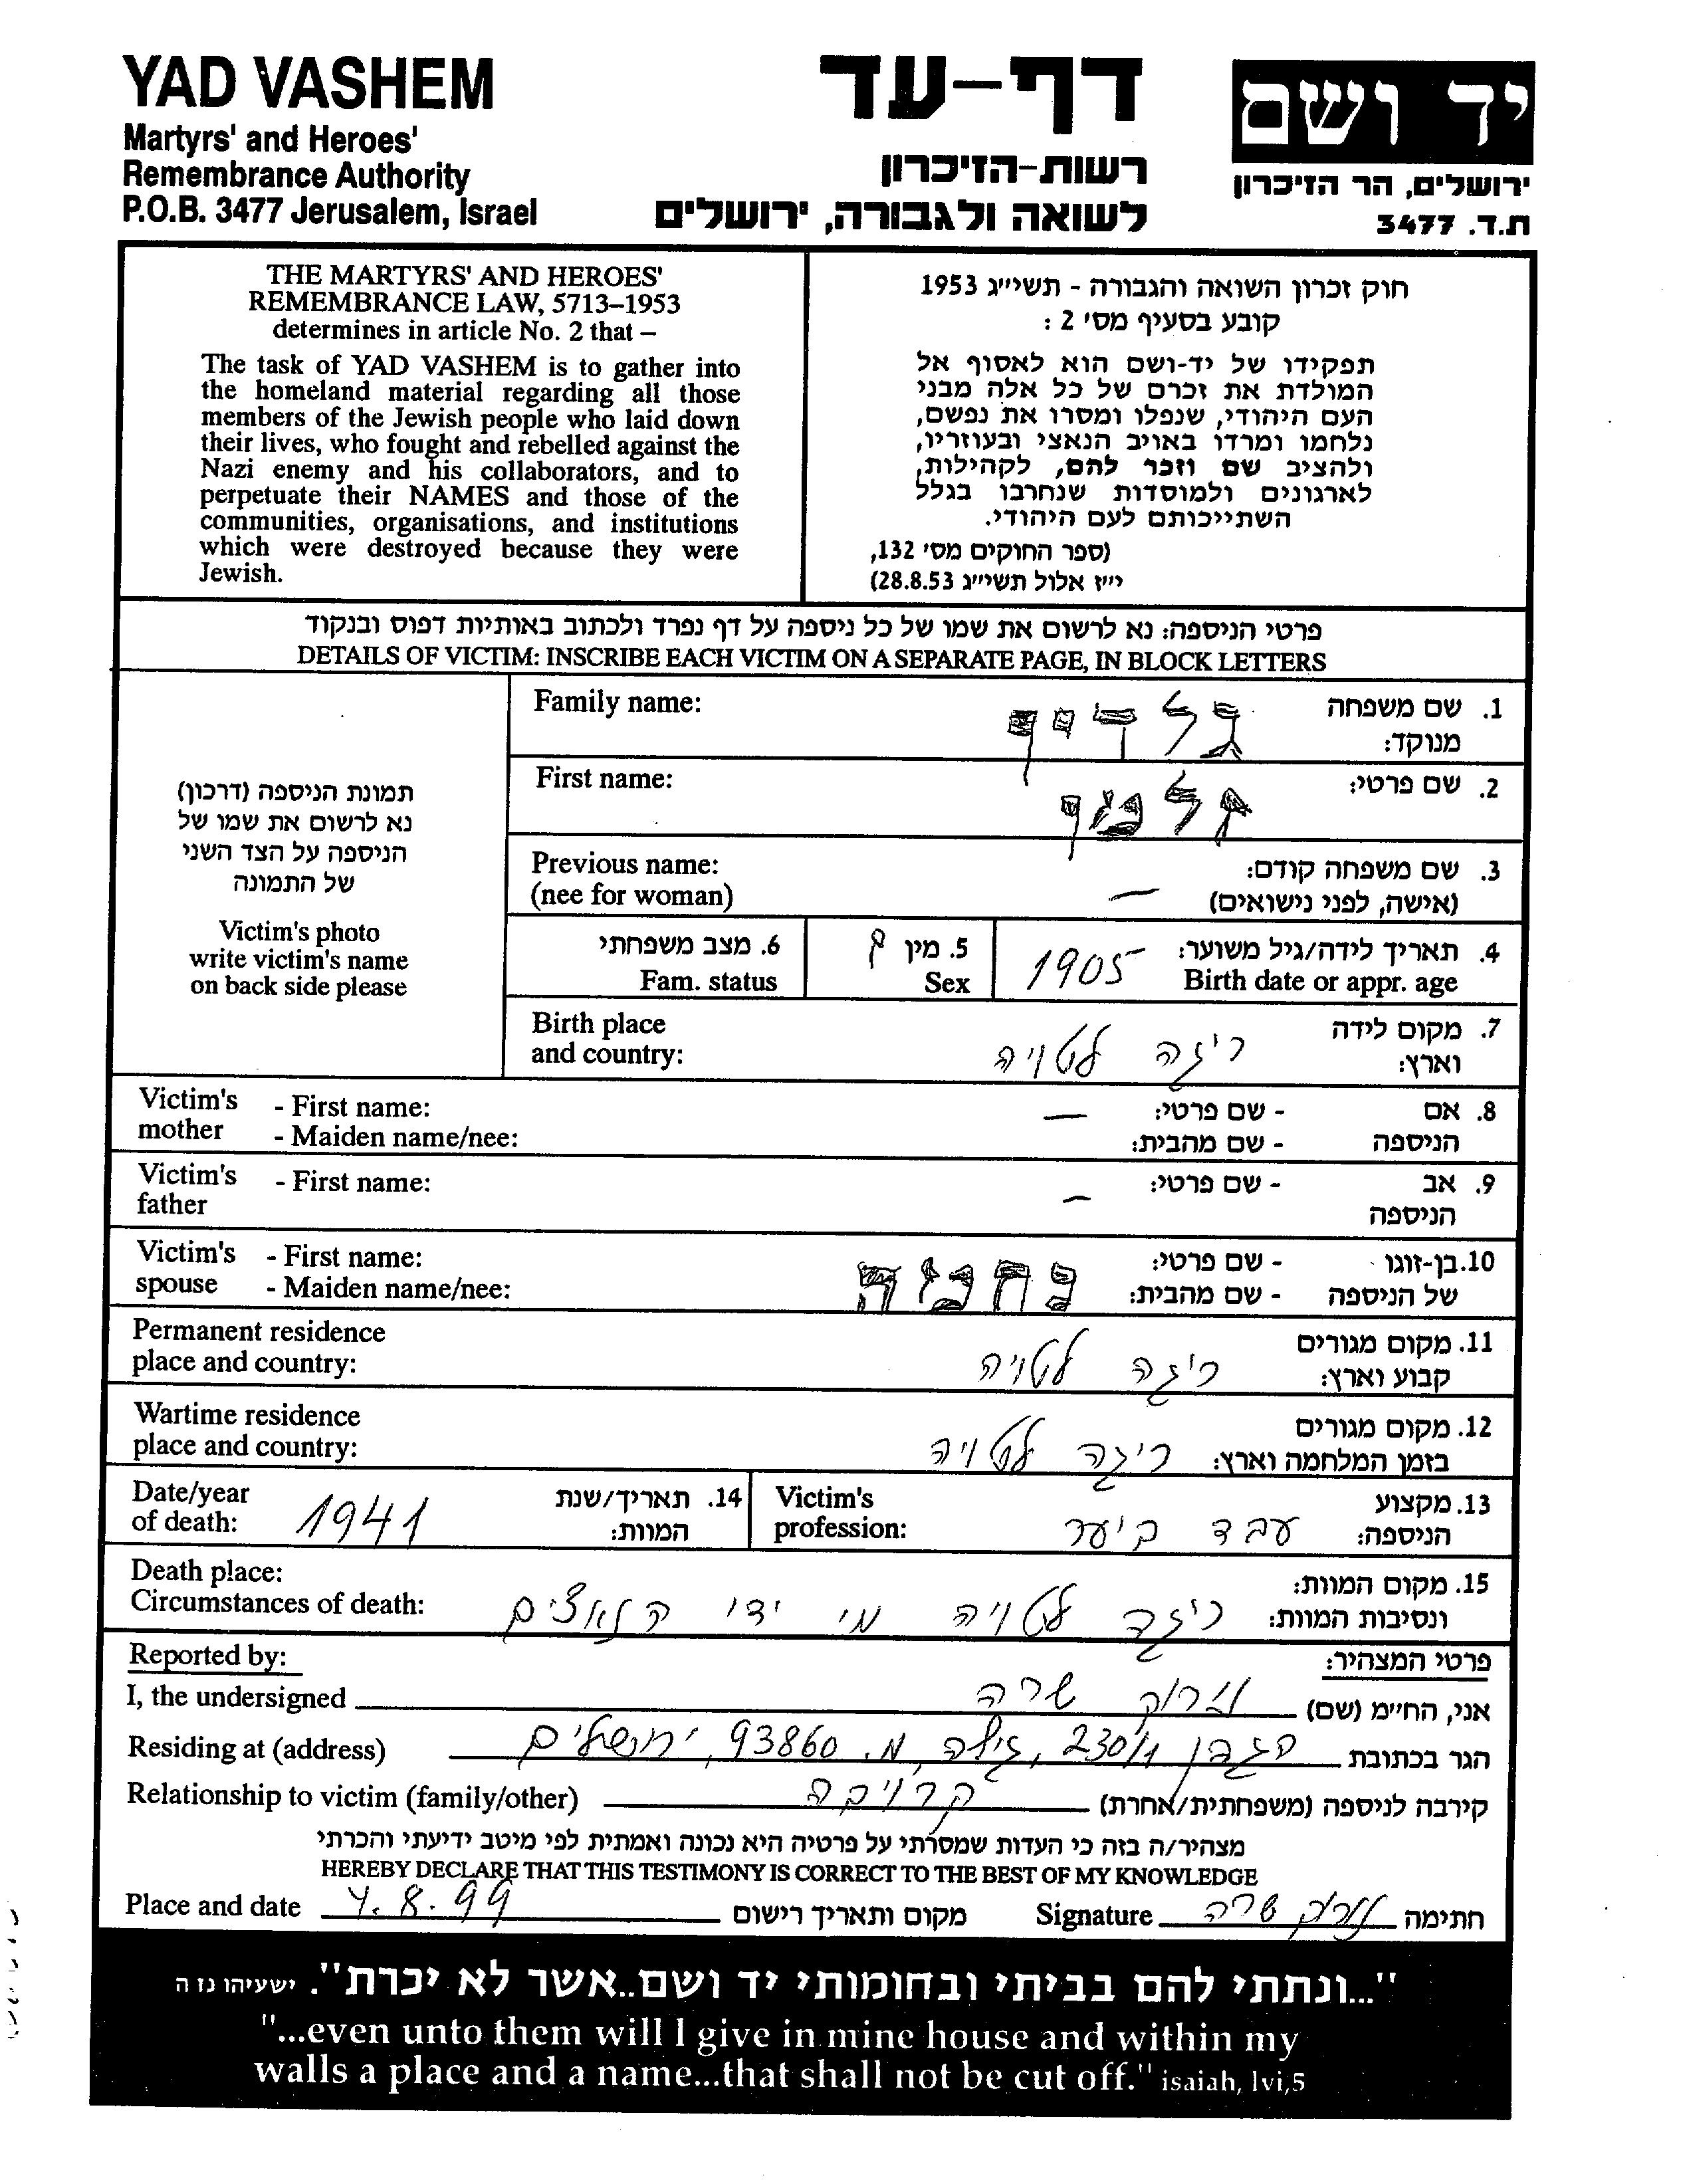 YAD VASHEM
Martyrs' and Heroes'
Remembrance Authority
P.O.B. 3477 Jerusalem, Israel
דף-עד
רשות-הזיכרון
לשואה ולגבורה, ירושלים
יד ושם
ירושלים, הר הזיכרון
ת.ד. 3477
THE MARTYRS' AND HEROES'
REMEMBRANCE LAW, 5713–1953
determines in article No. 2 that –
The task of YAD VASHEM is to gather into
the homeland material regarding all those
members of the Jewish people who laid down
their lives, who fought and rebelled against the
Nazi enemy and his collaborators, and to
perpetuate their NAMES and those of the
communities, organisations, and institutions
which were destroyed because they were
Jewish.
חוק זכרון השואה והגבורה - תשי״ג 1953
קובע בסעיף מס׳ 2 :
תפקידו של יד-ושם הוא לאסוף אל
המולדת את זכרם של כל אלה מבני
העם היהודי, שנפלו ומסרו את נפשם,
נלחמו ומרדו באויב הנאצי ובעוזריו,
ולהציב שם וזכר להם, לקהילות,
לארגונים ולמוסדות שנחרבו בגלל
השתייכותם לעם היהודי.
(ספר החוקים מס׳ 132,
י״ז אלול תשי״ג 28.8.53)
פרטי הניספה: נא לרשום את שמו של כל ניספה על דף נפרד ולכתוב באותיות דפוס ובנקוד
DETAILS OF VICTIM: INSCRIBE EACH VICTIM ON A SEPARATE PAGE, IN BLOCK LETTERS
תמונת הניספה (דרכון)
נא לרשום את שמו של
הניספה על הצד השני
של התמונה
Victim's photo
write victim's name
on back side please
Family name:
1. שם משפחה
מנוקד:
First name:
2. שם פרטי:
Previous name:
(nee for woman)
—
3. שם משפחה קודם:
(אישה, לפני נישואים)
6. מצב משפחתי
Fam. status
5. מין
Sex
4. תאריך לידה/גיל משוער: 1905
Birth date or appr. age
Birth place
and country:
7. מקום לידה
וארץ: ריגה לטויה
Victim's mother
- First name:
- Maiden name/nee:
8. אם הניספה
- שם פרטי: —
- שם מהבית:
Victim's father
- First name:
9. אב הניספה
- שם פרטי: —
Victim's spouse
- First name:
- Maiden name/nee:
10. בן-זוגו של הניספה
- שם פרטי:
- שם מהבית:
Permanent residence
place and country:
11. מקום מגורים
קבוע וארץ: ריגה לטויה
Wartime residence
place and country:
12. מקום מגורים
בזמן המלחמה וארץ: ריגה לטויה
Date/year
of death: 1941
14. תאריך/שנת
המוות:
Victim's
profession:
13. מקצוע
הניספה: עבד ביער
Death place:
Circumstances of death:
15. מקום המוות:
ונסיבות המוות: ריגה לטויה מי ידי הנאצים
Reported by:
פרטי המצהיר:
I, the undersigned
אני, החי״מ (שם) שרה
Residing at (address)
הגר בכתובת 230/1, גילה, 93860, ירושלים
Relationship to victim (family/other)
קירבה לניספה (משפחתית/אחרת) קרובה
מצהיר/ה בזה כי העדות שמסרתי על פרטיה היא נכונה ואמתית לפי מיטב ידיעתי והכרתי
HEREBY DECLARE THAT THIS TESTIMONY IS CORRECT TO THE BEST OF MY KNOWLEDGE
Place and date 4.8.99 מקום ותאריך רישום
Signature שרה חתימה
"...ונתתי להם בביתי ובחומותי יד ושם..אשר לא יכרת". ישעיהו נז ה
"...even unto them will I give in mine house and within my
walls a place and a name...that shall not be cut off." isaiah, lvi,5